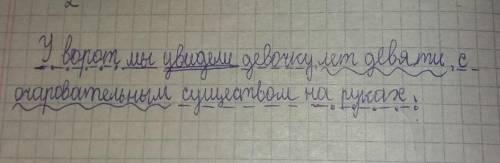 У ворот мы увидели девочку лет девяти, с
очаровательным существом на руках.